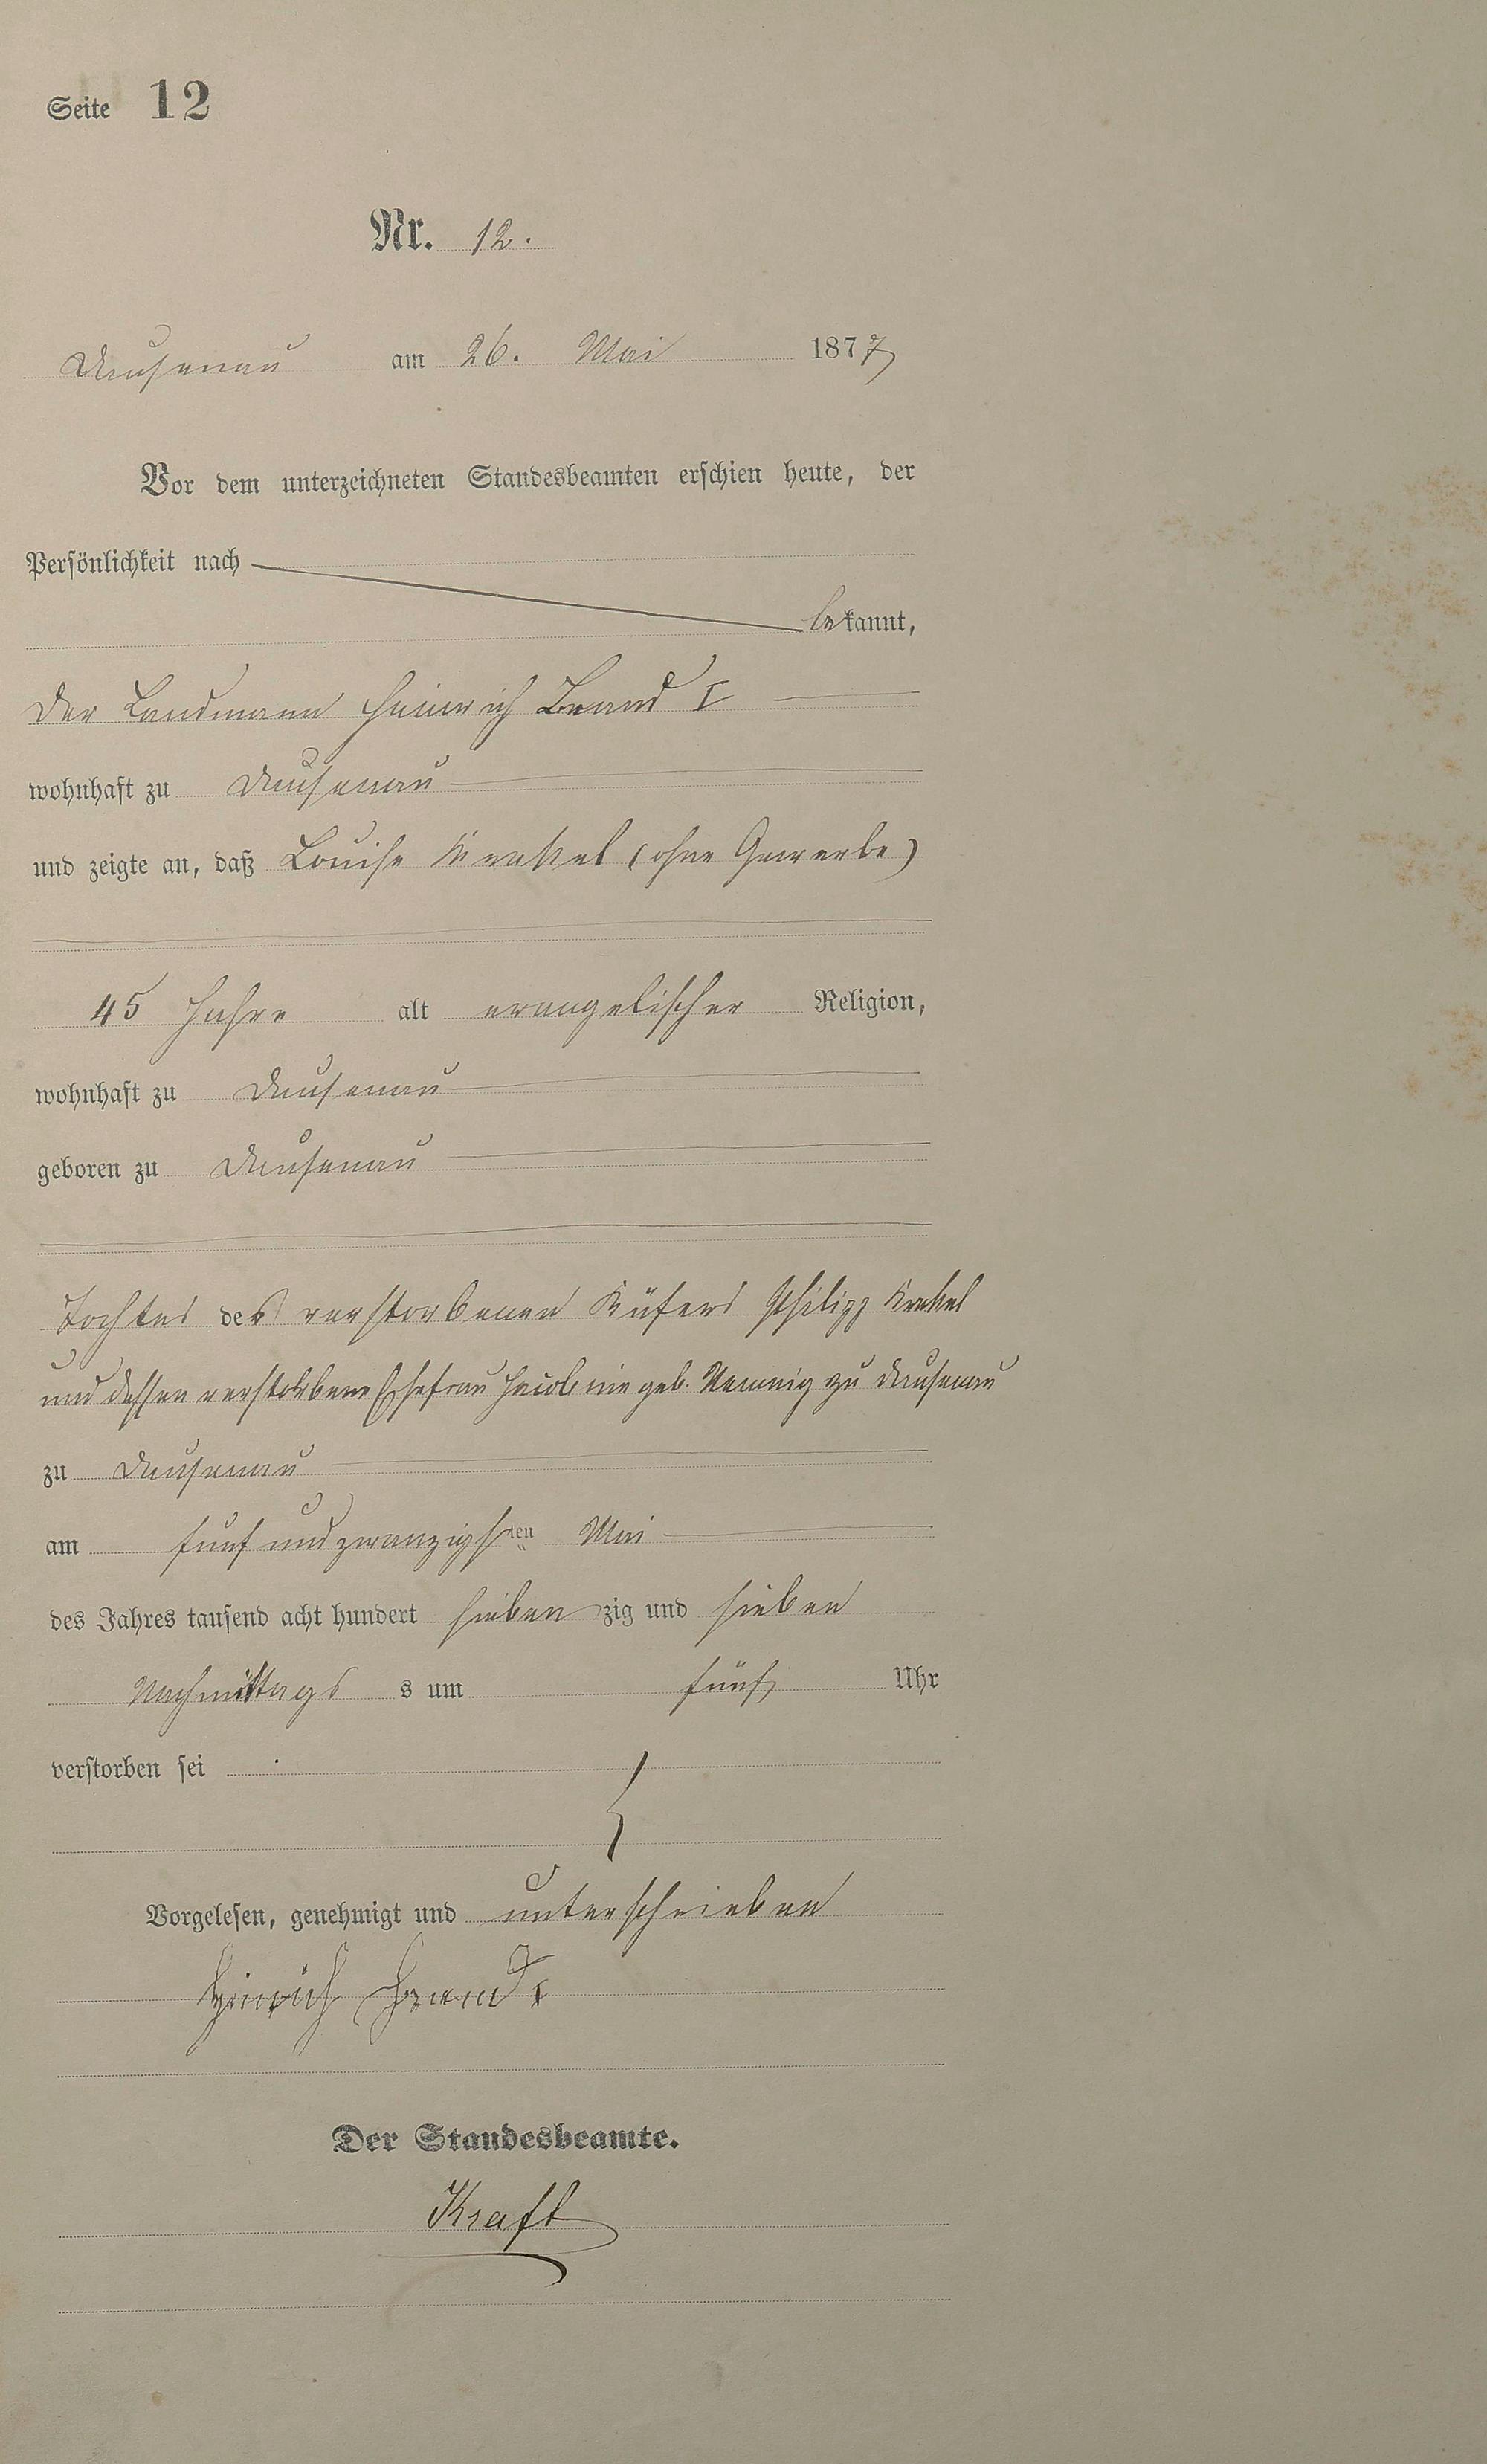 Seite 12
Nr. 12.
Dausenau am 26. Mai 1877
Vor dem unterzeichneten Standesbeamten erschien heute, der
Persönlichkeit nach
bekannt,
der Landmann Heinrich Brand I
wohnhaft zu Dausenau
und zeigte an, daß Louise Krekel (ohne Gewerbe)
45 Jahre alt evangelischer Religion,
wohnhaft zu Dausenau
geboren zu Dausenau
Tochter des verstorbenen Küfers Philipp Krekel
und dessen verstorbene Ehefrau Jacobine geb. zu Dausenau
zu Dausenau
am fünf und zwanzigsten Mai
des Jahres tausend acht hundert sieben zig und sieben
Nachmittags s um fünf Uhr
verstorben sei
Vorgelesen, genehmigt und unterschrieben
Heinrich Brand I
Der Standesbeamte.
Kraft